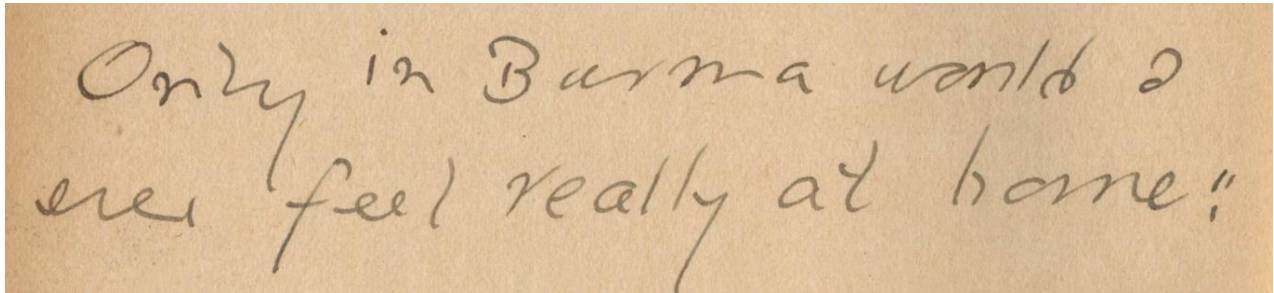 Only in Burma would I
ever feel really at home."